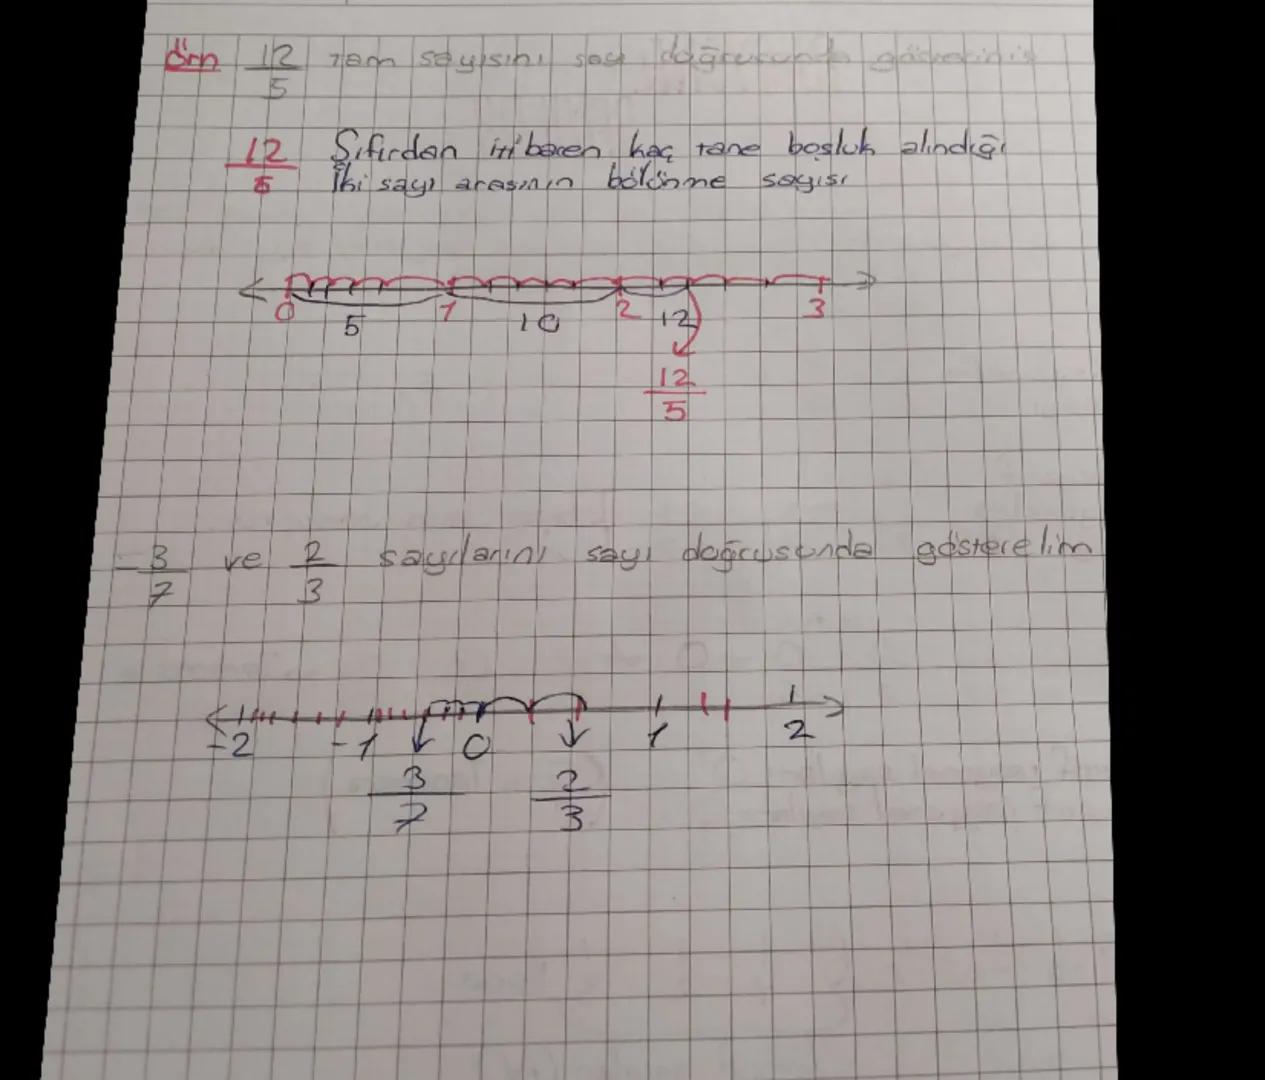 Örn 12/5 tam sayısını sayı doğrusunda gösteriniz
12/5 Sıfırdan itibaren kaç tane boşluk alındığı
İki sayı arasının bölünme sayısı
0 1 2 3
5 10 12
12/5
-3/7 ve 2/3 sayılarını sayı doğrusunda gösterelim
-2 -1 0 1 2
3/7 2/3